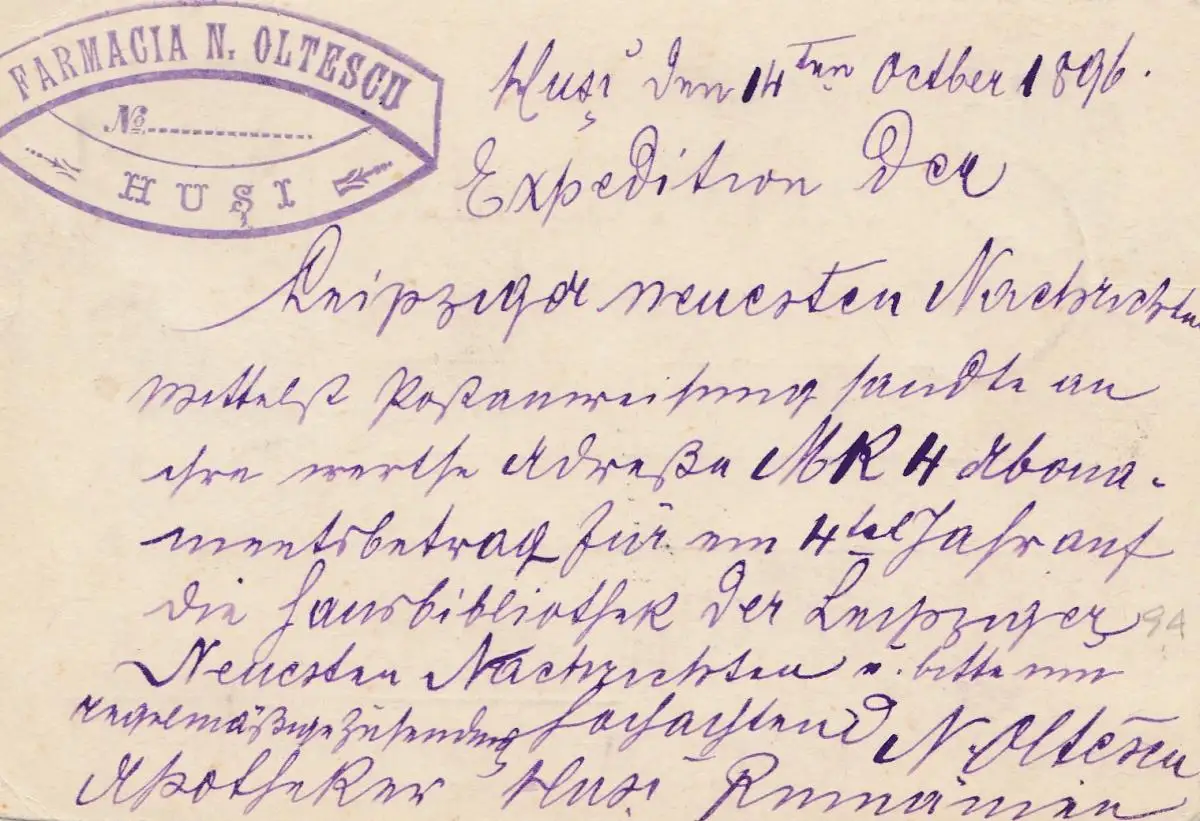 FARMACIA N. OLTESCU
No
HUȘI
Huși den 14ten Octber 1896.
Expedition der
Leipziger neuesten Nachrichten
Mittelst Postanweisung sandte an
ihre werthe Adreße MK 4 Abona-
mentsbetrag für ein 4tel Jahr auf
die Hausbibliothek der Leipziger
Neuesten Nachrichten u. bitte um
regelmäßige Zusendung Hochachtend N. Oltescu
Apotheker Huși Rumänien
94